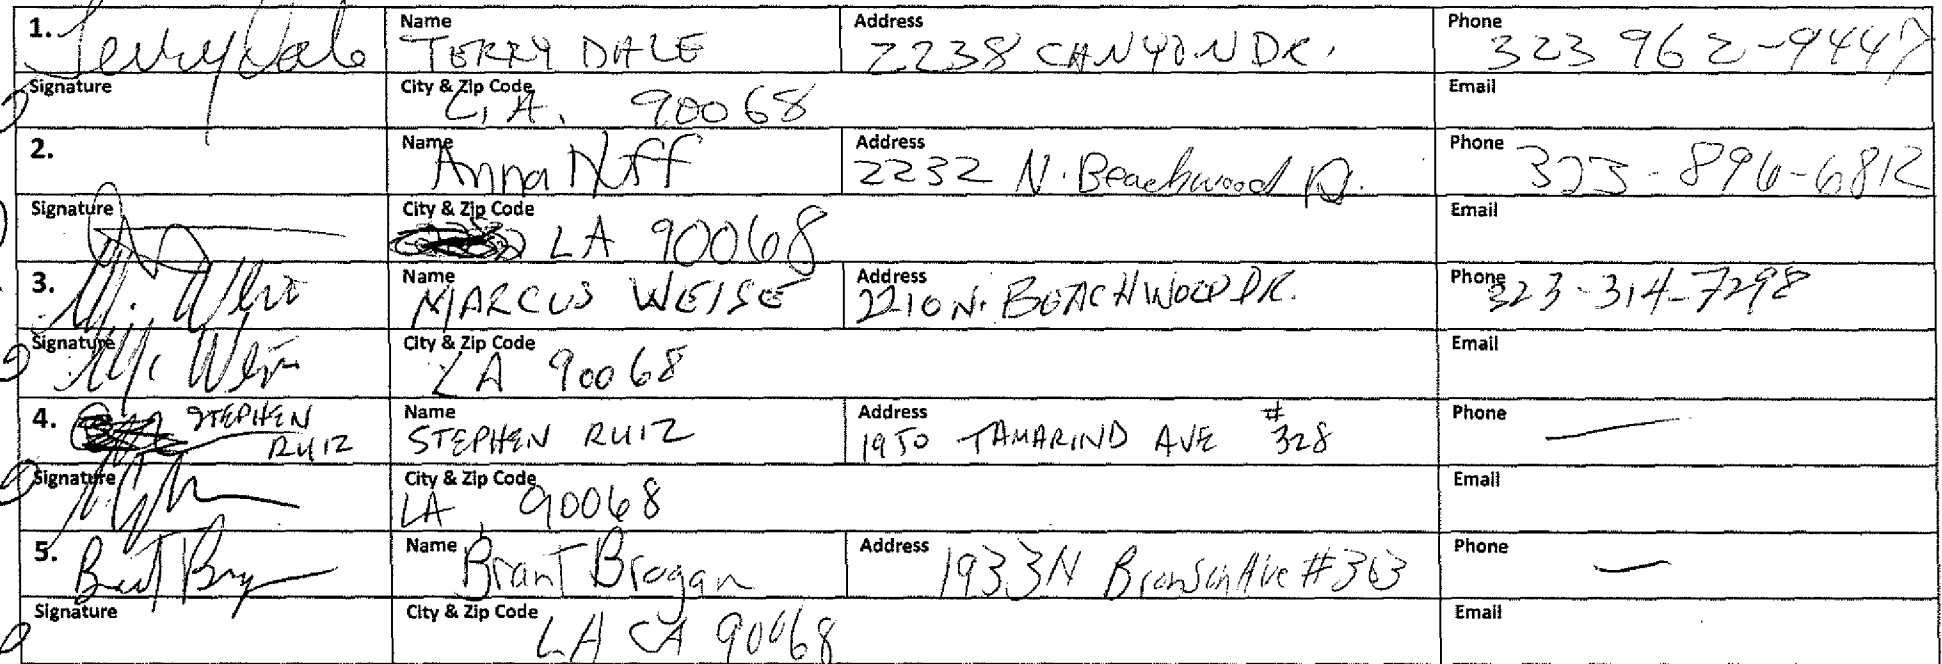 1. Terry Dale Name TERRY DALE Address 2238 CANYON DR. Phone 323 962-9447
Signature City & Zip Code L.A. 90068 Email
2. Name Anna Nuff Address 2232 N. Beachwood Dr. Phone 323-896-6812
Signature City & Zip Code LA 90068 Email
3. Name MARCUS WEISE Address 2210 N. BEACHWOOD DR. Phone 323-314-7298
Signature City & Zip Code LA 90068 Email
4. STEPHEN RUIZ Name STEPHEN RUIZ Address 1950 TAMARIND AVE #328 Phone —
Signature City & Zip Code LA, 90068 Email
5. Name Brant Brogan Address 1933 N Bronson Ave #303 Phone —
Signature City & Zip Code LA CA 90068 Email